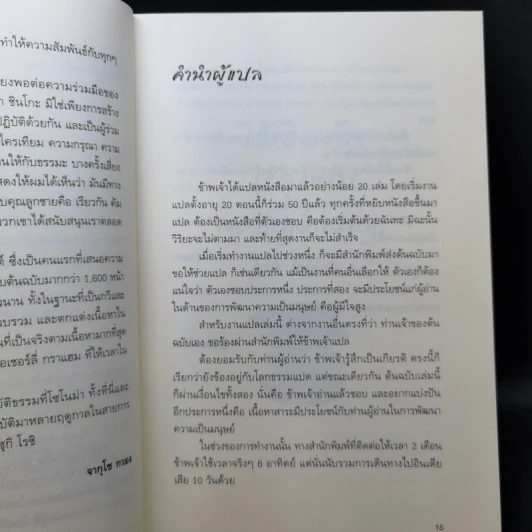 ทำให้ความสัมพันธ์กับทุกๆ
ยงพอต่อความร่วมมือของ
า ชินโกะ มิใช่เพียงการสร้าง
ปฏิบัติด้วยกัน และเป็นผู้ร่วม
ใครเทียม ความกรุณา ความ
นให้กับธรรมะ บางครั้งเสี่ยง
สดงให้ผมได้เห็นว่า มันมีทาง
บคุณลูกชายคือ เรียวกัน คัม
วกเขาได้สนับสนุนเราตลอด
ด์ ซึ่งเป็นคนแรกที่เสนอความ
บต้นฉบับมากกว่า 1,600 หน้า
วนาน ทั้งในฐานะที่เป็นกวีและ
บรวม และตกแต่งเนื้อหาใน
ที่เป็นจริงตามเนื้อหามากที่สุด
อเชอร์ลี่ กราแฮม ที่ให้เวลาใน
บัติธรรมที่โซโนม่า ทั้งที่นี่และ
บัติมาหลายฤดูกาลในสายการ
ซูกิ โรชิ
จากุโช กวอง
คำนำผู้แปล
ข้าพเจ้าได้แปลหนังสือมาแล้วอย่างน้อย 20 เล่ม โดยเริ่มงาน
แปลตั้งอายุ 20 ตอนนี้ก็ร่วม 50 ปีแล้ว ทุกครั้งที่หยิบหนังสือขึ้นมา
แปล ต้องเป็นหนังสือที่ตัวเองชอบ คือต้องเริ่มต้นด้วยฉันทะ มิฉะนั้น
วิริยะจะไม่ตามมา และท้ายที่สุดงานก็จะไม่สำเร็จ
เมื่อเริ่มทำงานแปลไปช่วงหนึ่ง ก็จะมีสำนักพิมพ์ส่งต้นฉบับมา
ขอให้ช่วยแปล ก็เช่นเดียวกัน แม้เป็นงานที่คนอื่นเลือกให้ ตัวเองก็ต้อง
แน่ใจว่า ตัวเองชอบประการหนึ่ง ประการที่สอง จะมีประโยชน์แก่ผู้อ่าน
ในด้านของการพัฒนาความเป็นมนุษย์ คือผู้มีใจสูง
สำหรับงานแปลเล่มนี้ ต่างจากงานอื่นตรงที่ว่า ท่านเจ้าของต้น
ฉบับเอง ขอร้องผ่านสำนักพิมพ์ให้ข้าพเจ้าแปล
ต้องยอมรับกับท่านผู้อ่านว่า ข้าพเจ้ารู้สึกเป็นเกียรติ ตรงนี้ก็
เรียกว่ายังข้องอยู่กับโลกธรรมแปด แต่ขณะเดียวกัน ต้นฉบับเล่มนี้
ก็ผ่านเงื่อนไขทั้งสอง นั่นคือ ข้าพเจ้าอ่านแล้วชอบ และอยากแบ่งปัน
อีกประการหนึ่งคือ เนื้อหาสาระมีประโยชน์กับท่านผู้อ่านในการพัฒนา
ความเป็นมนุษย์
ในช่วงของการทำงานนั้น ทางสำนักพิมพ์ที่ติดต่อให้เวลา 2 เดือน
ข้าพเจ้าใช้เวลาจริงๆ 6 อาทิตย์ แต่นั่นนับรวมการเดินทางไปอินเดีย
เสีย 10 วันด้วย
15